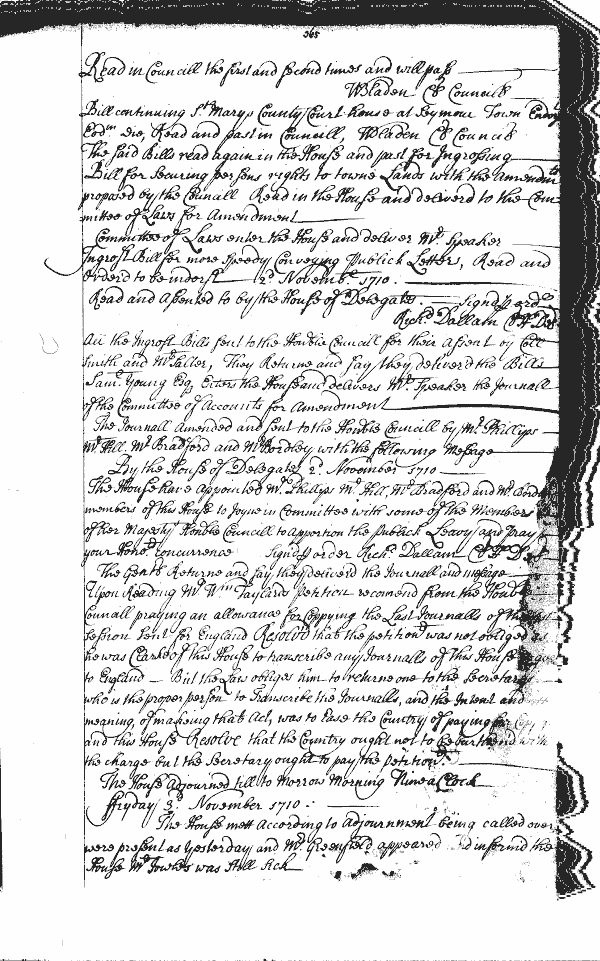 365
Read in Councill the first and second times and will pass
WBladen Cl Councill
Bill continuing St Marys County Court house at Seymour Town Endors
Eodm die, Read and past in Councill, WBladen Cl Councill
The said Bills read again in the House and past for Ingrossing
Bill for Securing persons rights to towne Lands with the amendmts
proposed by the Councill Read in the House and deliverd to the Com
mittee of Laws for Amendment
Committee of Laws enter the House and deliver Mr Speaker
Ingrost Bill for more speedy Conveying Publick Letters, Read and
Orderd to be indorst 2d Novembr 1710.
Read and assented to by the House of Delegates. Signd p ordr
Richd Dallam Cl H Del
All the Ingrost Bills sent to the Honble Councill for their assent by Coll
Smith and Mr, They Returne and say they deliverd the Bills
Saml Young Esq Enters the House and delivers Mr Speaker the Journall
of the Committee of Accounts for Amendment
The Journall Amended and sent to the Honble Councill by Mr Phillips
Mr Hill, Mr Bradford and Mr Bordley with the following Message
By the House of Delegates 2d November 1710
The House have Appointed Mr Phillips Mr Hill, Mr Bradford and Mr Bordley
members of this House to Joyne in Committee with some of the Members
of her Majestys Honble Councill to apportion the Publick Leavy and prays
your Honrs Concurrence Signd p order Richd Dallam Cl H D
The Gents Returne and say they deliverd the Journall and message
Upon Reading Mr Wm Taylards petition recomend from the Honble
Councill praying an allowance for Coppying the Last Journalls of the
Session sent for England Resolvd that the petitionr was not obliged as
he was Clarke of this House to transcribe any Journalls of this House
to England But the Law obliges him to returne one to the Secretary
who is the proper person to Transcribe the Journalls, and the Intent and
meaning, of making that Act, was to Ease the Country of paying for
and this House Resolve that the Country ought not to be burthend with
the charge but the Secretary ought to pay the petitionr.
The House Adjourned till to Morrow Morning Nine a Clock
ffryday 3d November 1710.
The House mett According to adjournment being called over
were present as Yesterday and Mr Greenfield appeared and informd the
House Mr was still Sick